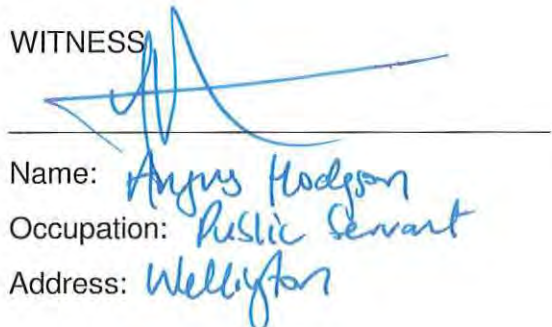 WITNESS
Name: Angus Hodgson
Occupation: Public Servant
Address: Wellington